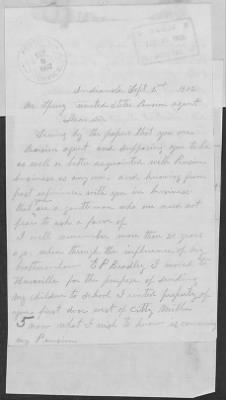 Indianola Sept 2nd 1902
Mr Spury United States Pension agent
Dear sir
Seeing by the papers that you were
Pension agent and supposing you to be
as well or better acquainted with Pension
business as any one, and knowing from
past experience with you in business
that you are a gentleman who one need not
fear to ask a favor of
I will remember more than 20 years
ago, when through the influence of my
brother in law E P Bradley I moved to
Knoxville for the purpose of sending
my children to school I rented property of
you first door west of
5 now what I wish to know is concerning
my Pension